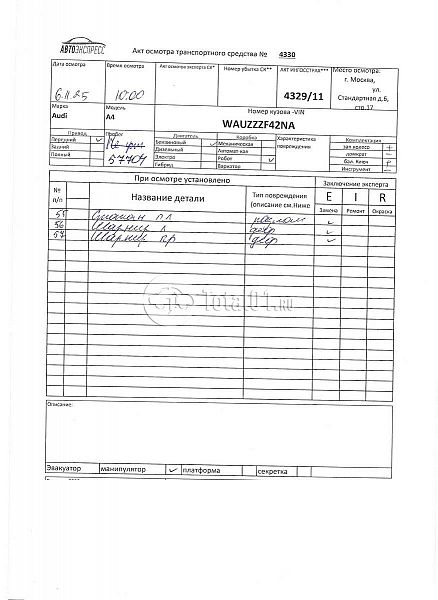 АВТОЭКСПРЕСС
Акт осмотра транспортного средства № 4330
Дата осмотра Время осмотра Акт осмотра эксперта СК* Номер убытка СК** АКТ ИНГОССТРАХ*** Место осмотра:
г. Москва,
ул.
Стандартная д.6,
стр.17
6.11.25 10:00 4329/11
Марка Модель Номер кузова -VIN
Audi A4 WAUZZZF42NA
Привод Пробег Двигатель Коробка Характеристика повреждения Комплектация
Передний Бензиновый Механическая зап колесо +
Задний Дизельный Автомат-кая домкрат -
Полный 57704 Электро Робот бал. Ключ
Гибрид Вариатор Инструмент -
При осмотре установлено Заключение эксперта
№ п/п Название детали Тип повреждения (описание см.Ниже E I R
Замена Ремонт Окраска
55
56 Шарнир л
57 Шарнир пр
Total01.RU
Описание:
Эвакуатор манипулятор платформа секретка